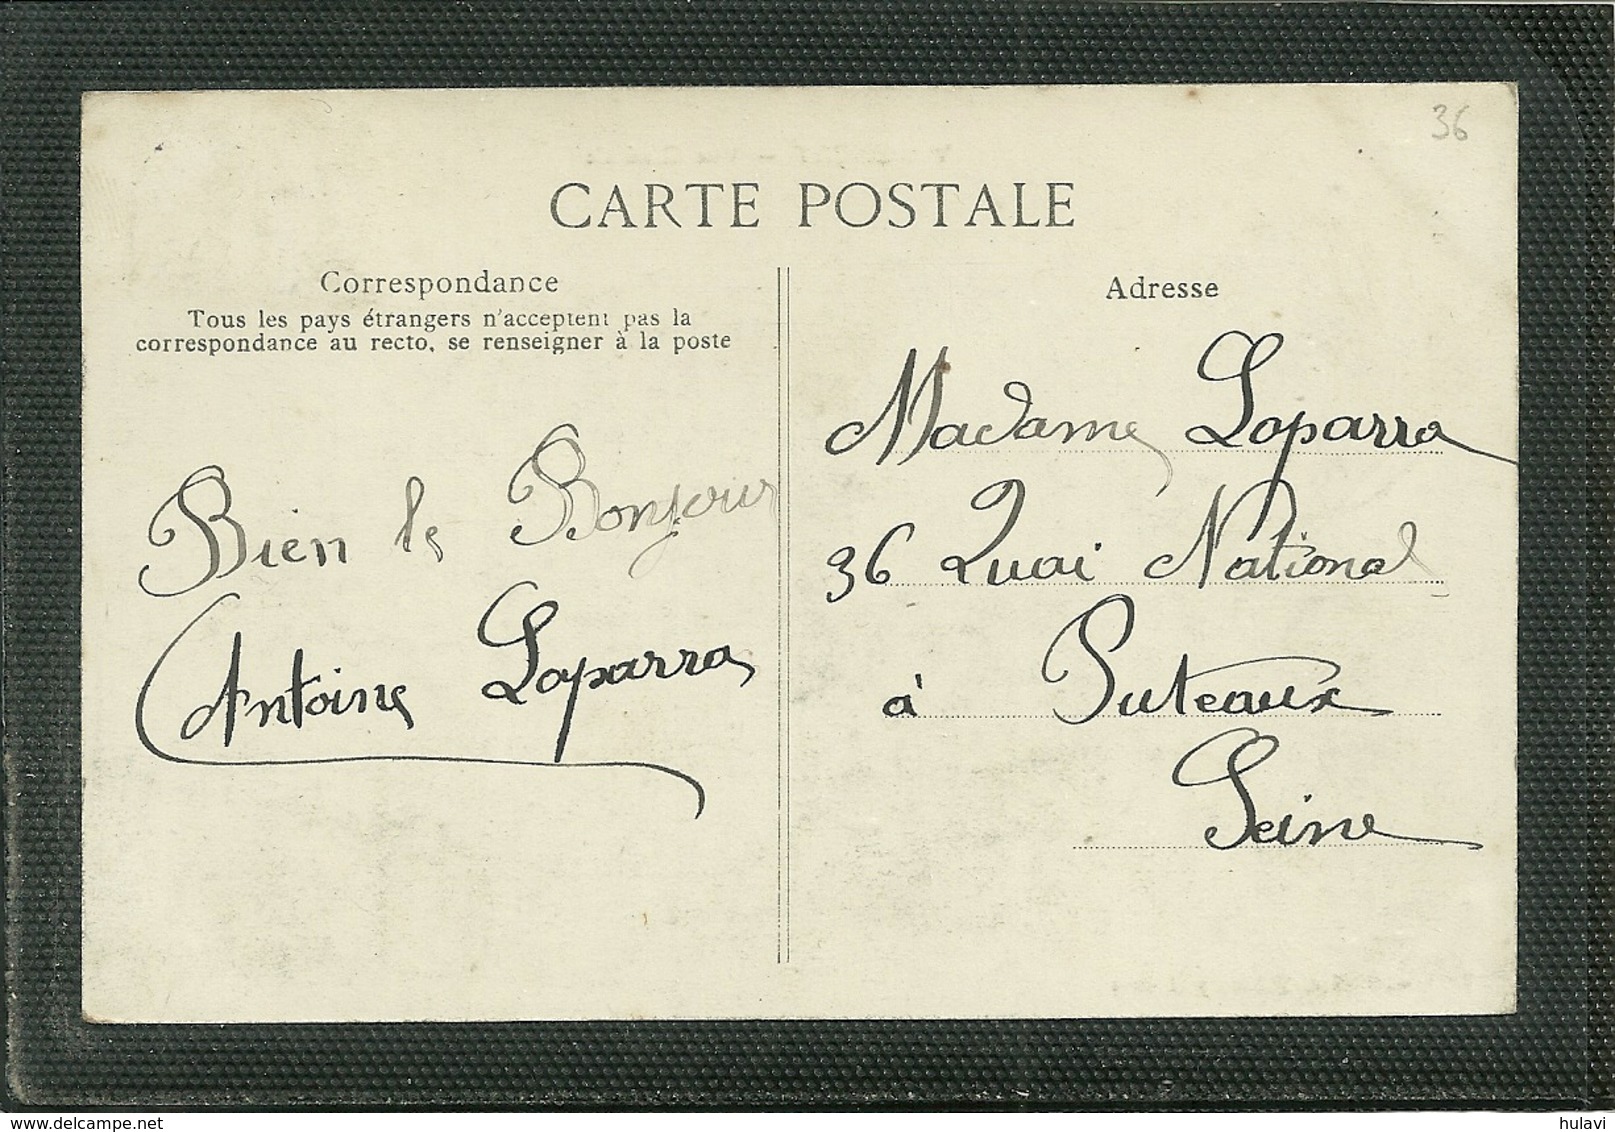 36
CARTE POSTALE
Correspondance
Tous les pays étrangers n'acceptent pas la
correspondance au recto, se renseigner à la poste
Bien le Bonjour
Antoine Laparra
Adresse
Madame Laparra
36 Quai National
à Puteaux
Seine
www.delcampe.net
hulavi